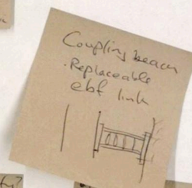 Coupling beam
- Replaceable
ebf link